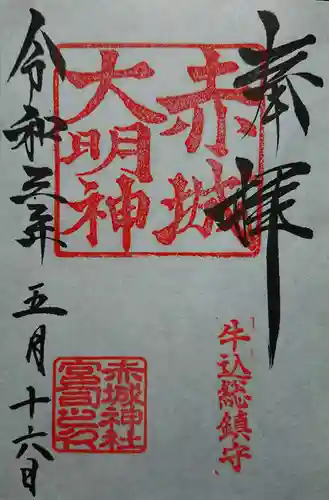 奉拝
赤城
大明神
牛込総鎮守
赤城神社
宮司之印
令和三年
五月十六日